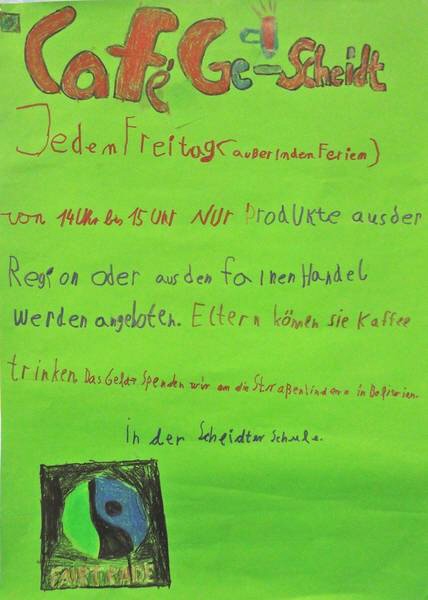 Café Ge-Scheidt
Jeden Freitag (außer in den Feriem)
von 14 Uhr bis 15 Uhr Nur Produkte aus der
Region oder aus den fainen Handel
werden angeboten. Eltern können sie Kaffee
trinken. Das Geld spenden wir an die Straßenkindern in Bolivien.
in der Scheidter Schule.
FAIRTRADE